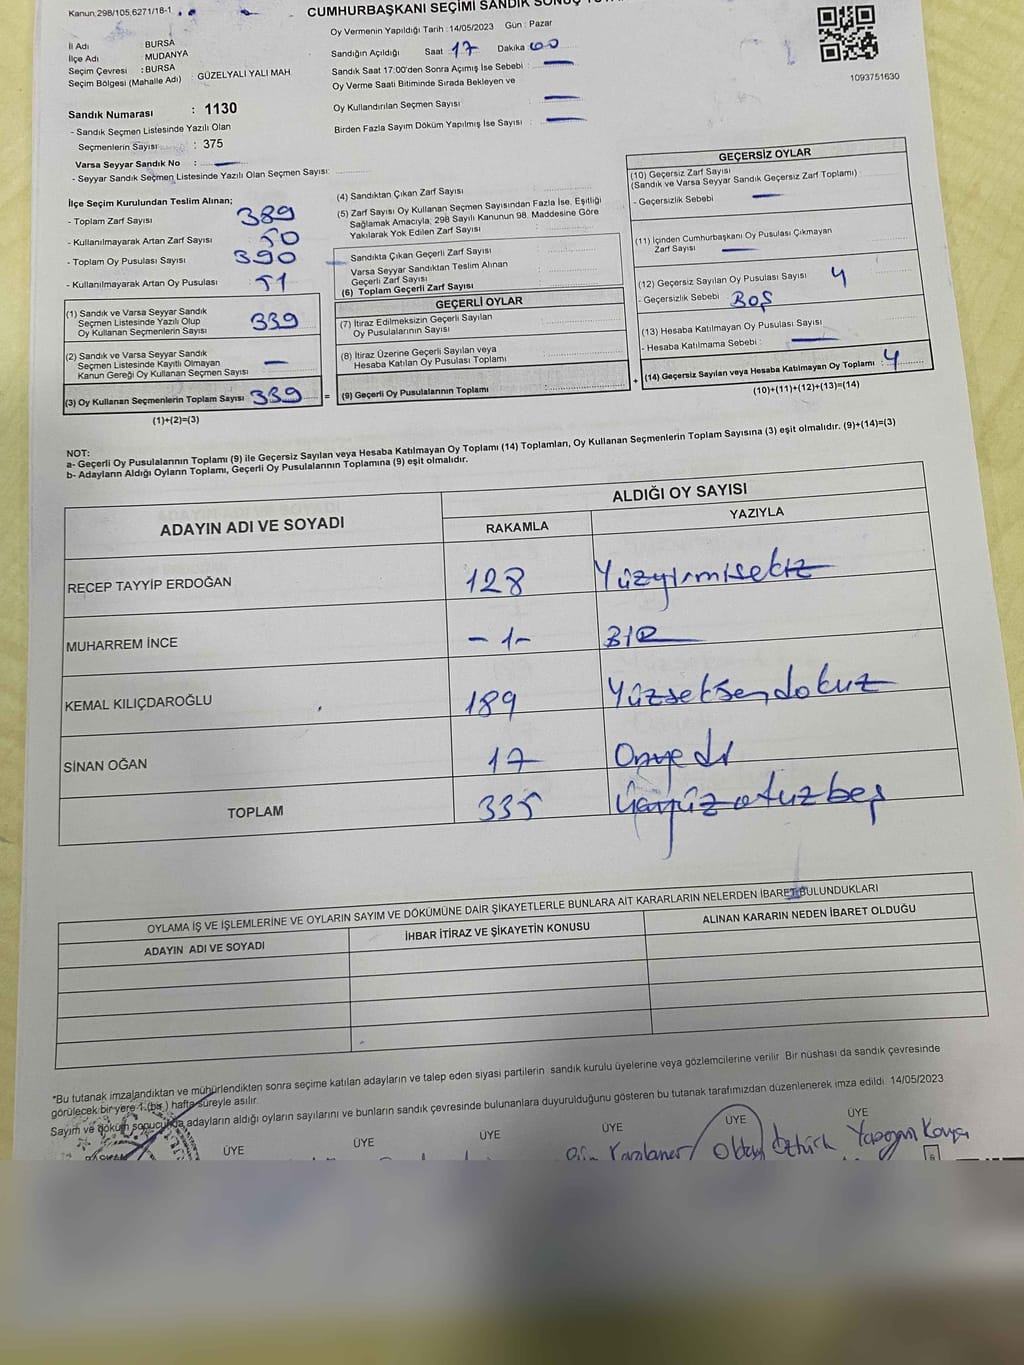 Kanun,298/105,6271/18-1
CUMHURBAŞKANI SEÇİMİ SANDIK SONUÇ
Oy Vermenin Yapıldığı Tarih :14/05/2023 Gün : Pazar
İl Adı BURSA
İlçe Adı MUDANYA
Seçim Çevresi : BURSA
Seçim Bölgesi (Mahalle Adı) : GÜZELYALI YALI MAH.
Sandığın Açıldığı Saat 17 Dakika 00
Sandık Saat 17:00'den Sonra Açımış İse Sebebi : —
Oy Verme Saati Bitiminde Sırada Bekleyen ve
Oy Kullandırılan Seçmen Sayısı —
Birden Fazla Sayım Döküm Yapılmış İse Sayısı : —
1093751630
Sandık Numarası : 1130
- Sandık Seçmen Listesinde Yazılı Olan
Seçmenlerin Sayısı : 375
Varsa Seyyar Sandık No : —
- Seyyar Sandık Seçmen Listesinde Yazılı Olan Seçmen Sayısı:
İlçe Seçim Kurulundan Teslim Alınan;
- Toplam Zarf Sayısı 389
- Kullanılmayarak Artan Zarf Sayısı 50
- Toplam Oy Pusulası Sayısı 390
- Kullanılmayarak Artan Oy Pusulası 51
(1) Sandık ve Varsa Seyyar Sandık
Seçmen Listesinde Yazılı Olup
Oy Kullanan Seçmenlerin Sayısı 339
(2) Sandık ve Varsa Seyyar Sandık
Seçmen Listesinde Kayıtlı Olmayan
Kanun Gereği Oy Kullanan Seçmen Sayısı —
(3) Oy Kullanan Seçmenlerin Toplam Sayısı 339
(1)+(2)=(3)
=
(4) Sandıktan Çıkan Zarf Sayısı :
(5) Zarf Sayısı Oy Kullanan Seçmen Sayısından Fazla İse, Eşitliği
Sağlamak Amacıyla; 298 Sayılı Kanunun 98. Maddesine Göre
Yakılarak Yok Edilen Zarf Sayısı :
Sandıkta Çıkan Geçerli Zarf Sayısı :
Varsa Seyyar Sandıktan Teslim Alınan
Geçerli Zarf Sayısı :
(6) Toplam Geçerli Zarf Sayısı :
GEÇERLİ OYLAR
(7) İtiraz Edilmeksizin Geçerli Sayılan
Oy Pusulalarının Sayısı :
(8) İtiraz Üzerine Geçerli Sayılan veya
Hesaba Katılan Oy Pusulası Toplamı :
(9) Geçerli Oy Pusulalarının Toplamı :
+
GEÇERSİZ OYLAR
(10) Geçersiz Zarf Sayısı
(Sandık ve Varsa Seyyar Sandık Geçersiz Zarf Toplamı)
- Geçersizlik Sebebi —
(11) İçinden Cumhurbaşkanı Oy Pusulası Çıkmayan
Zarf Sayısı —
(12) Geçersiz Sayılan Oy Pusulası Sayısı 4
- Geçersizlik Sebebi BOŞ
(13) Hesaba Katılmayan Oy Pusulası Sayısı
- Hesaba Katılmama Sebebi : —
(14) Geçersiz Sayılan veya Hesaba Katılmayan Oy Toplamı : 4
(10)+(11)+(12)+(13)=(14)
NOT:
a- Geçerli Oy Pusulalarının Toplamı (9) ile Geçersiz Sayılan veya Hesaba Katılmayan Oy Toplamı (14) Toplamları, Oy Kullanan Seçmenlerin Toplam Sayısına (3) eşit olmalıdır. (9)+(14)=(3)
b- Adayların Aldığı Oyların Toplamı, Geçerli Oy Pusulalarının Toplamına (9) eşit olmalıdır.
ADAYIN ADI VE SOYADI ALDIĞI OY SAYISI
RAKAMLA YAZIYLA
RECEP TAYYİP ERDOĞAN 128 Yüzyirmisekiz
MUHARREM İNCE - 1 - BİR
KEMAL KILIÇDAROĞLU 189 Yüzseksendokuz
SİNAN OĞAN 17 Onyedi
TOPLAM 335 üçyüzotuzbeş
OYLAMA İŞ VE İŞLEMLERİNE VE OYLARIN SAYIM VE DÖKÜMÜNE DAİR ŞİKAYETLERLE BUNLARA AİT KARARLARIN NELERDEN İBARET BULUNDUKLARI
ADAYIN ADI VE SOYADI İHBAR İTİRAZ VE ŞİKAYETİN KONUSU ALINAN KARARIN NEDEN İBARET OLDUĞU
*Bu tutanak imzalandıktan ve mühürlendikten sonra seçime katılan adayların ve talep eden siyasi partilerin sandık kurulu üyelerine veya gözlemcilerine verilir. Bir nüshası da sandık çevresinde
görülecek bir yere 1 (bir) hafta süreyle asılır.
Sayım ve döküm sonucunda adayların aldığı oyların sayılarını ve bunların sandık çevresinde bulunanlara duyurulduğunu gösteren bu tutanak tarafımızdan düzenlenerek imza edildi. 14/05/2023
ÜYE ÜYE ÜYE ÜYE ÜYE ÜYE
Öztürk